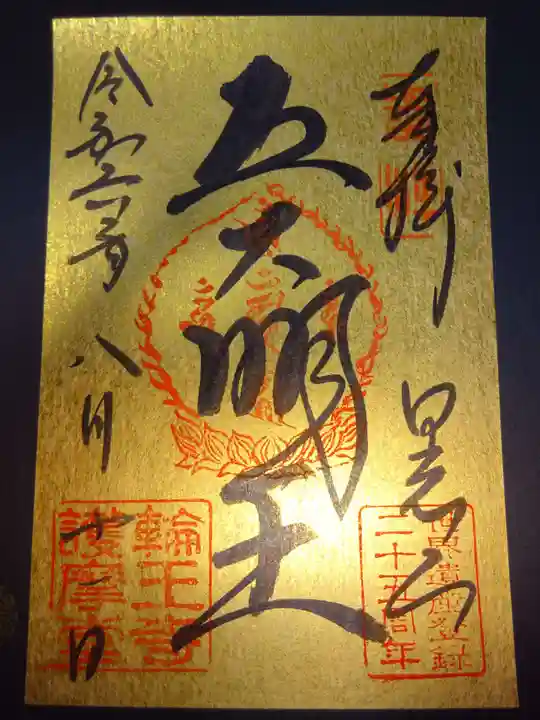 奉拝
日光山
五大明王
令和六年八月十一日
世界遺産登録
二十五周年
輪王寺
護摩堂